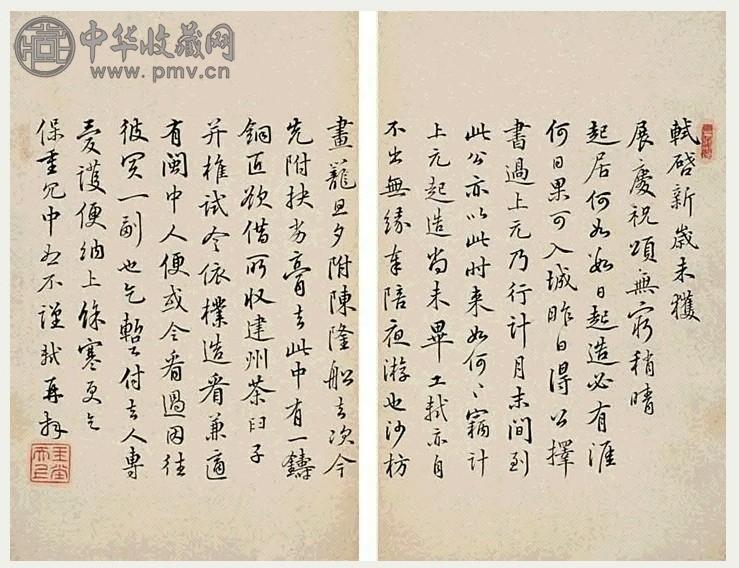 中华收藏网
www.pmv.cn
軾啓新歲未獲
展慶祝頌無窮稍晴
起居何如數日起造必有涯
何日果可入城昨日得公擇
書過上元乃行計月末間到
此公亦以此时来如何〻竊計
上元起造尚未畢工軾亦自
不出無緣奉陪夜游也沙枋
畫籠旦夕附陳隆船去次今
先附扶劣膏去此中有一鑄
銅匠欲借所收建州茶臼子
并椎試令依樣造看兼適
有閩中人便或令看過因往
彼買一副也乞暫付去人專
愛護便納上餘寒更乞
保重冗中恕不謹軾再拜